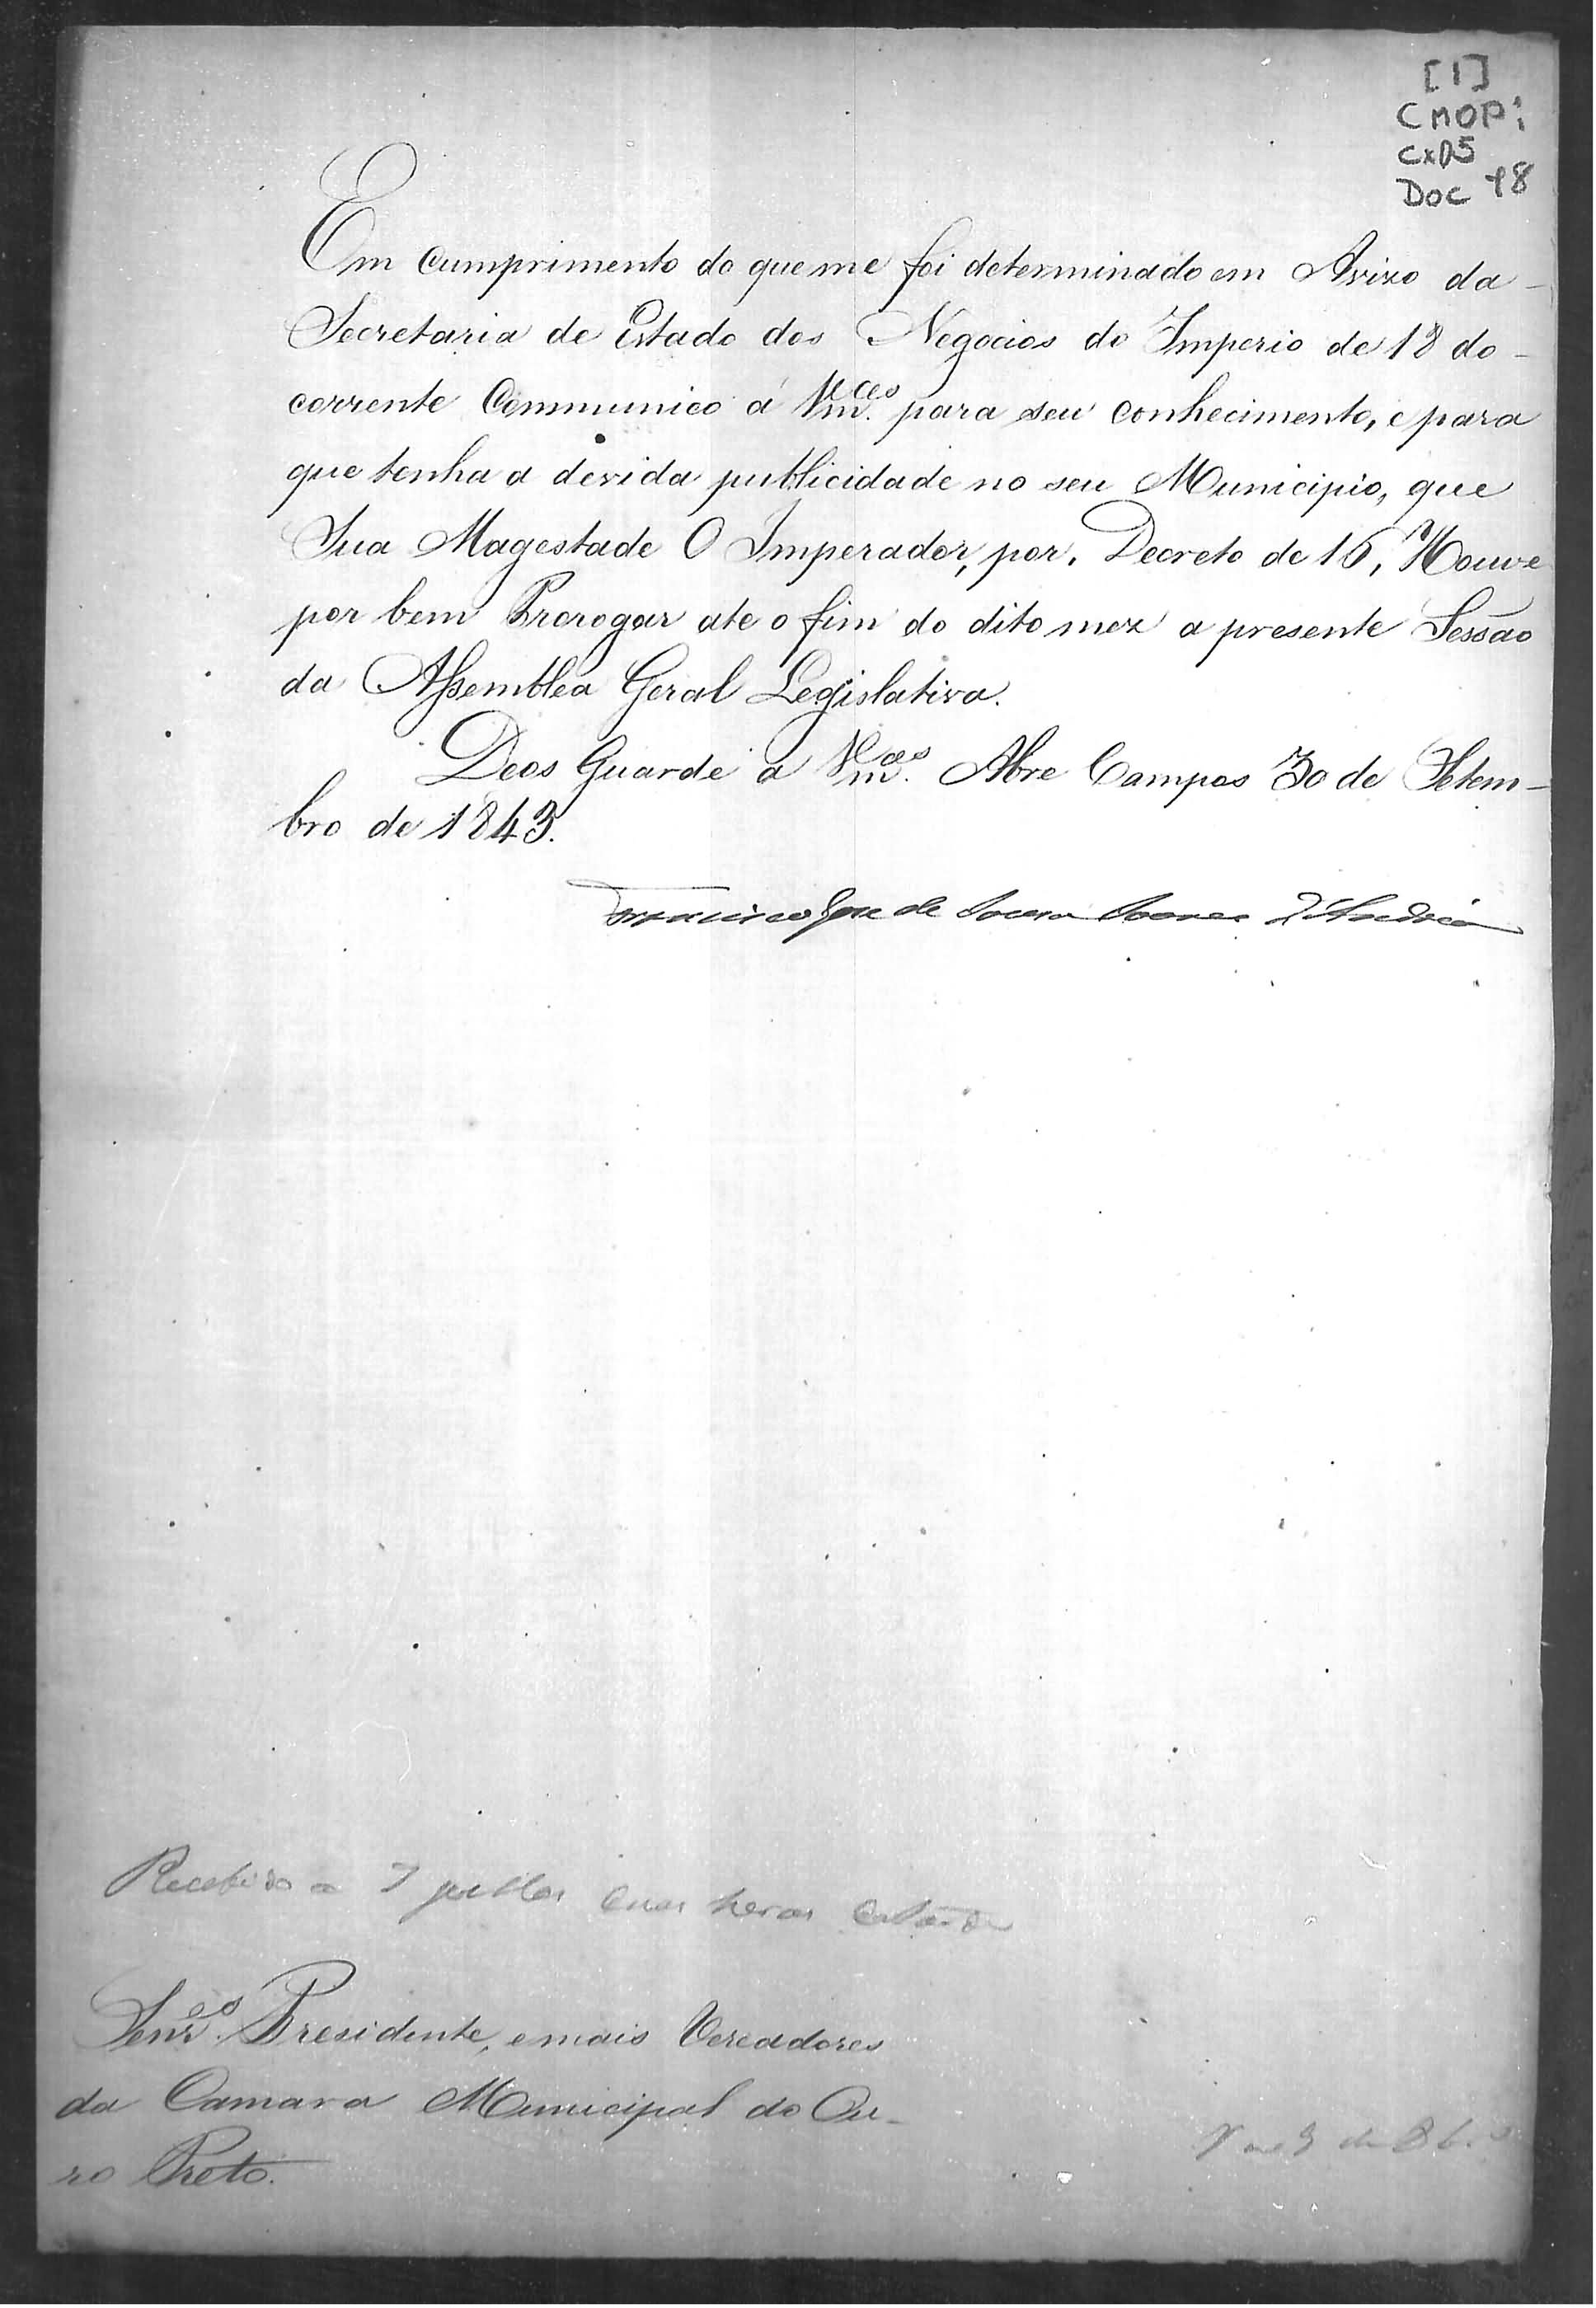 [1]
CMOPi
Cx 05
Doc 18
Em cumprimento do que me foi determinado em Avizo da -
Secretaria de Estado dos Negocios do Imperio de 18 do -
corrente Communico á Vm.ces para seu conhecimento, e para
que tenha a devida publicidade no seu Municipio, que
Sua Magestade O Imperador, por, Decreto de 16, Houve
por bem Prorogar ate o fim do dito mez a presente Sessão
da Assemblea Geral Legislativa.
Deos Guarde a Vm.ces Abre Campos 30 de Setem-
bro de 1843.
Francisco Jose de Souza Soares d'Andréa
Recebido a 7
horas
Senr.es Presidente, e mais Vereadores
da Camara Municipal do Ou-
ro Preto.